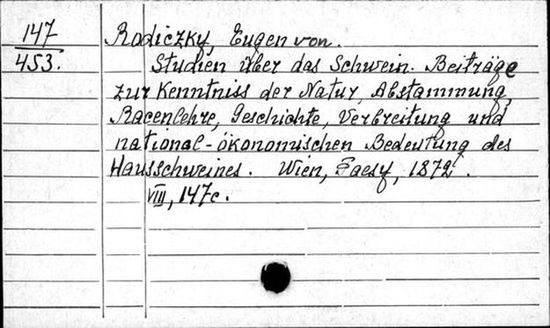 147
453.
Rodiczky, Eugen von.
Studien über das Schwein. Beiträge
zur Kenntniss der Natur, Abstammung,
Racenlehre, Geschichte, Verbreitung und
national-ökonomischen Bedeutung des
Hausschweines. Wien, Faesy, 1872.
VIII, 147c.